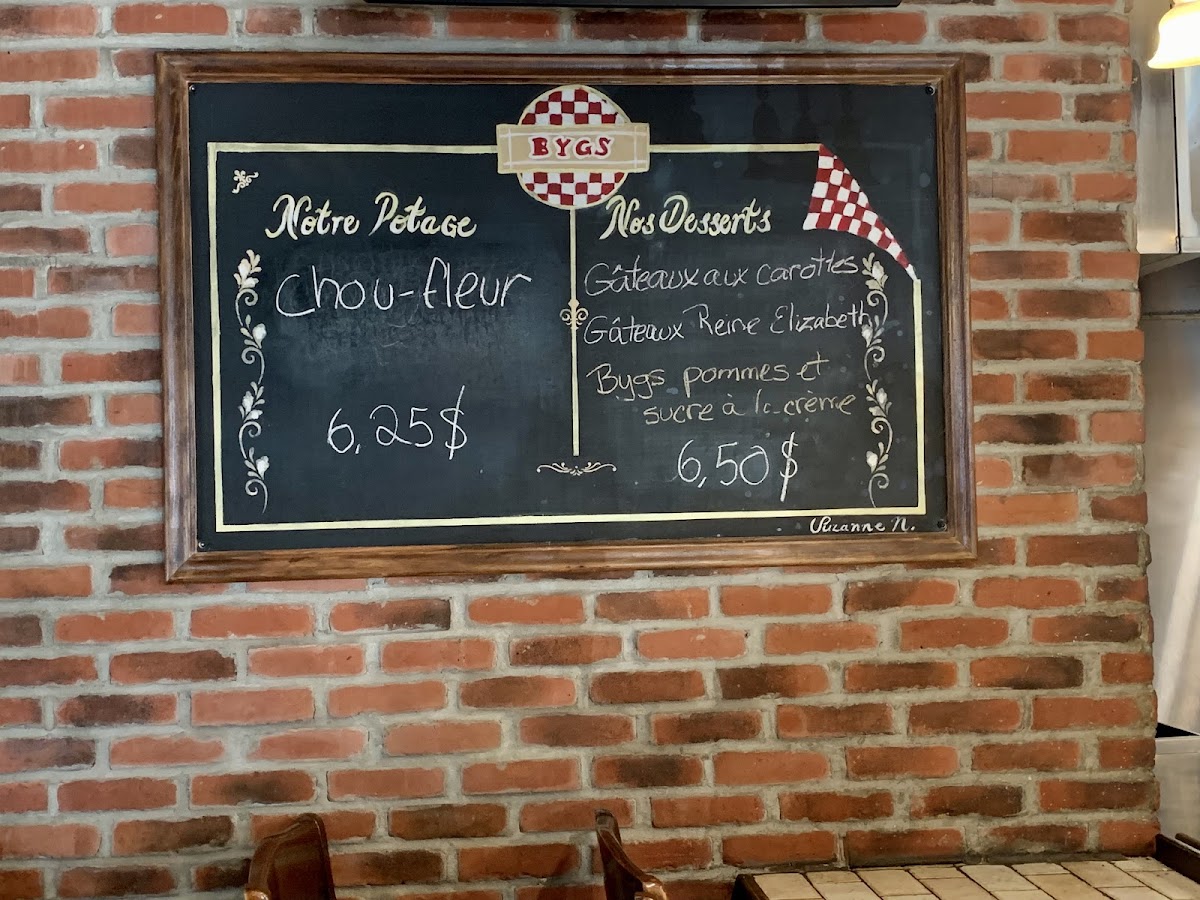 BYGS
Nôtre Potage
Chou-fleur
6,25$
Nos Desserts
Gâteaux aux carottes
Gâteaux Reine Elizabeth
Bygs pommes et
sucre à la crème
6,50$
Suzanne N.